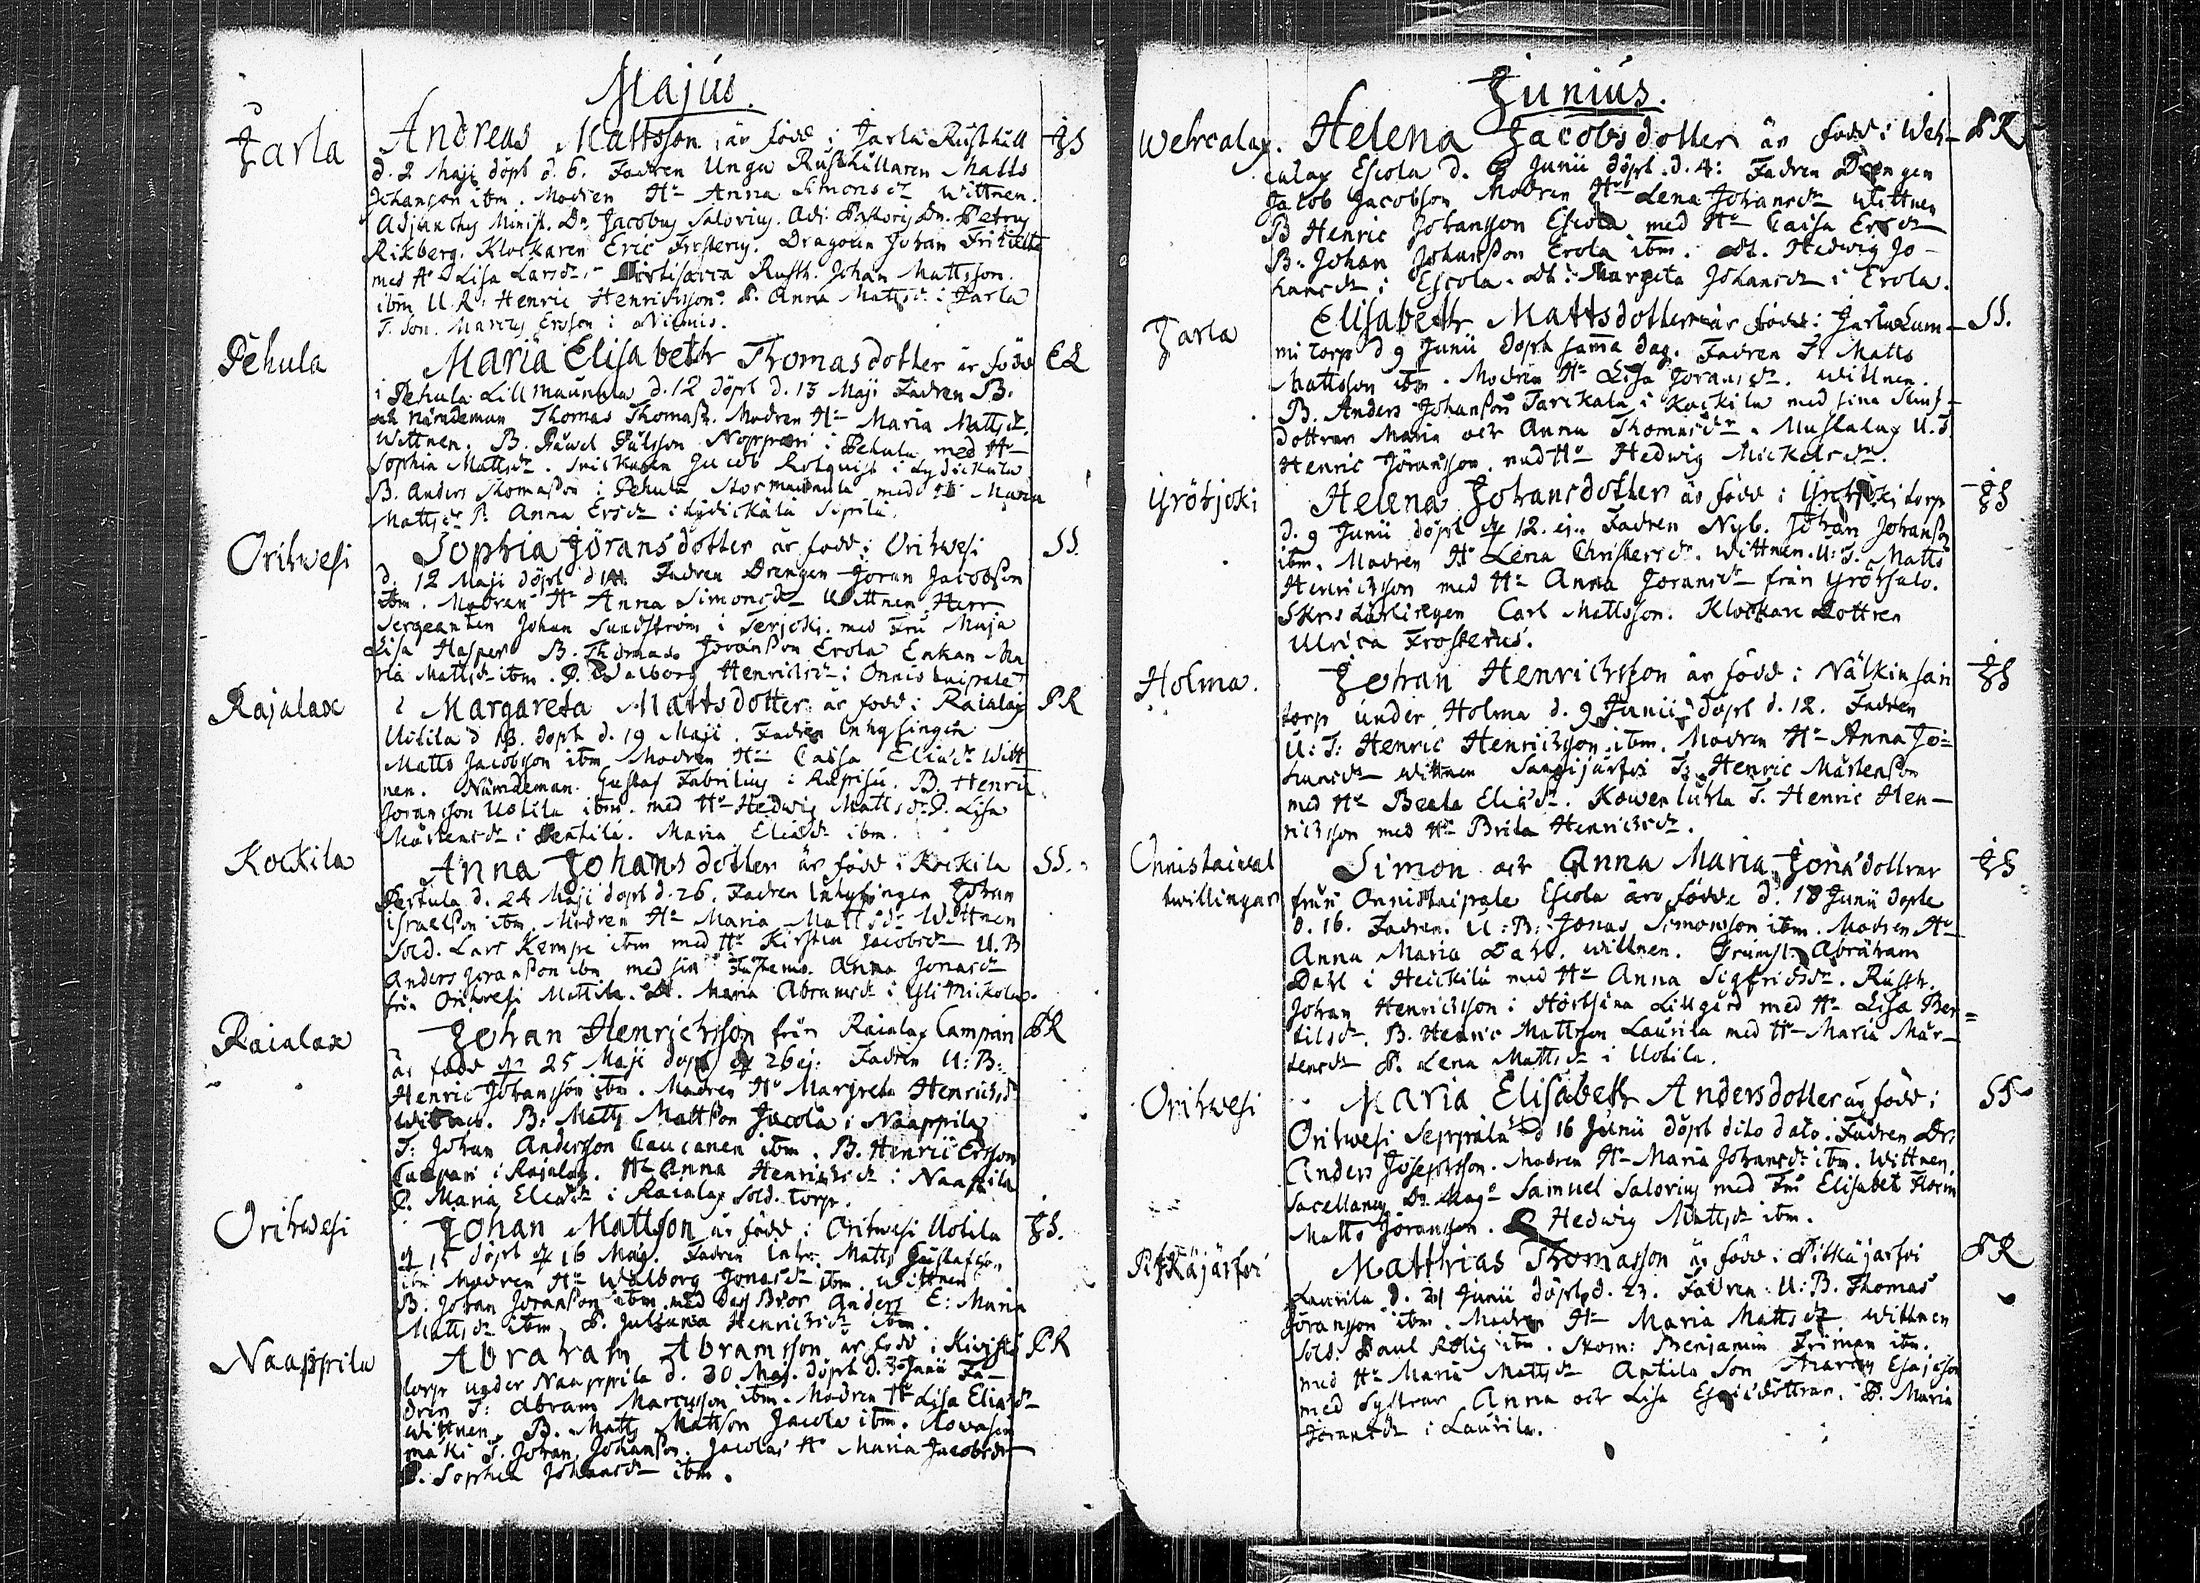 Majus.
Jarla Andreas Mattsson är född i Jarla Rusthåll JS
d. 2 Maji döpt d. 6. Fadren Unga Rusthållaren Matts
Johanson ibm. Modren Hu Anna Simonsdr Wittnen.
Adjunctus Minist. Dn. Jacobus Salovius. Adj: Pastoris Dn. Petrus
Rikberg. Klockaren Eric Frosterus. Dragoun Johan
med Hu Lisa Larsdr. Rusth. Johan Mattsson.
ibm U. R: Henric Henricksson. P. Anna Mattsdr i Jarla
T. Son. Marcus Ersson i
Pehula Maria Elisabeth Thomasdotter är född EL
i Pehula Lillmaunula d. 12 döpt d. 13 Maji Fadren B.
och Nämdeman Thomas Thomass. Modren Hu Maria Mattsdr.
Wittnen. B. Påwel Pålsson Noppari i Pehula med Hu
Sophia Mattsdr. Jacob Rolquist i Lydickälä
B. Anders Thomasson i Pehula Stormaunula med Hu Maria
Mattsdr P. Anna Ersdr i Lydickälä Sipilä.
Orihwesi Sophia Jöransdotter är född i Orihwesi SS.
d. 12 Maji döpt d Fadren Drengen Jöran Jacobsson
ibm. Modren Hu Anna Simonsdr Wittnen Herr
Sergeanten Johan Sundström i Serjoki. med Fru Maja
Lisa Hasper B. Thomas Joransson Erola Enkan Ma
ria Mattsdr ibm. P. Walborg Henricksdr i Onnistaipale
Rajalax Margareta Mattsdotter är född i Raialax PR
Uotila d 18. döpt d. 19 Maji. Fadren Inhysingen
Matts Jacobsson ibm Modren Hu Caisa Eliädr Witt
nen. Nämdeman Gustaf Fabrilius i B. Henric
Joransson Uotila ibm. med Hu Hedwig Mattsdr P. Lisa
Mårtensdr i Maria Eliädr ibm.
Kockila Anna Johansdotter är född i Kockila SS.
Pertula d. 24 Maji döpt d. 26. Fadren Inhysingen Johan
Israelsson ibm. Modren Hu Maria Mattsdr Wittnen
Sold. Lars Kempe ibm med Hu Kirstin Jacobsdr U. B
Anders Joransson ibm med sin Anna Jonasdr
från Orihwesi Mattila. Maria Abramsdr i
Raialax Johan Henricksson från Raialax Campari PR
är född d. 25 Maji döpt d. 26 ej. Fadren U: B:
Henric Johansson ibm. Modren Hu Margreta Henricksdr
Wittnen. B: Matts Mattsson Jacola i Naappila
T: Johan Andersson Caucanen ibm. B. Henric Ersson
Campari i Rajalax. Hu Anna Henricksdr i Naappila
P. Maria Eliasdr i Raialax Sold. torp.
Orihwesi Johan Mattsson är född i Orihwesi Uotila JS.
d 15 döpt d 16 Maj. Fadren Inhy. Matts Gustafsson
ibm Modren Hu Walborg Jonasdr ibm. Wittnen
B: Johan Joransson ibm med Des Bror Anders E: Maria
Mattsdr ibm P. Juliana Henricksdr ibm.
Naappila Abraham Abramsson är född i Kivistö PR
torp under Naappila d. 30 Maj. döpt d. 3 Junii Fa-
dren T: Abram Marcusson ibm. Modren Hu Lisa Eliasdr
Wittnen. B. Matts Mattson Jacola ibm.
mäki T. Johan Johansson. Jacolas Hu Maria Jacobsdr
P. Sophia Johansdr ibm.
Junius.
Wehcalax. Helena Jacobsdotter är född i Weh- PR
calax Escola d. Junii döpt. d. 4: Fadren Drengen
Jacob Jacobson Modren Hu Lena Johansdr Wittnen
B Henric Johansson Escola med Hu Caisa Ersdr
B: Johan Johansson Erola ibm. Dt. Hedwig Jo-
hansdr i Escola. Dt: Margeta Johansdr i Erola.
Jarla Elisabeth Mattsdotter är född i Jarla Lum- SS.
mi torp d 9 Junii döpt samma dag. Fadren Matts
Mattsson ibm. Modren Hu Lisa Joransdr. Wittnen.
B. Anders Johansson Tarckala i Kockila med sina
dottrar Maria och Anna Thomasdr. U. T.
Henric Jöransson med Hu Hedwig Mickelsdr.
Yröhjoki Helena Johansdotter är född i torp JS
d. 9 Junii döpt d 12. ej. Fadren Nyb. Johan Johansson
ibm. Modren Hu Lena Christersdr. Wittnen. U: T. Matts
Henricksson med Hu Anna Joransdr från
Lärlingen Carl Mattsson. Klockare Dottren
Ulrica Frosterus.
Holma. Johan Henricksson är född i JS
torp under Holma d. 9 Junii döpt d. 12. Fadren
U: T: Henric Henricksson ibm. Modren Hu Anna Jo=
hansdr Wittnen T: Henric Mårtensson
med Hu Beata Eliädr. T. Henric Hen-
ricksson med Hu Brita Henricksdr.
Onnistaipal Simon och Anna Maria Jonädottrar JS
twillingar från Onnistaipale Escola äro födde d. 13 Junii döpte
d. 16. Fadren. U: B: Jonas Simonsson ibm. Modren Hu
Anna Maria Dahl. Wittnen. Abraham
Dahl i Heickilä med Hu Anna Sigfridsdr. Rusth.
Johan Henricksson i Hörtsänä Lillgård med Hu Lisa Ber=
tilsdr. B. Henric Mattsson Laurila med Hu Maria Mår-
tensdr P. Lena Mattsdr i Uotila.
Orihwesi Maria Elisabeth Andersdotter är född i SS
Orihwesi Seppälä d 16 Junii döpt dito dato. Fadren Dr:
Anders Josephsson. Modren Hu Maria Johansdr ibm. Wittnen.
Sacellanus Dn. Mag. Samuel Salovius med Fru Elisabet Florin
Matts Joransson. Hedwig Mattsdr ibm.
Pitkäjärfvi Matthias Thomasson är född i Pitkäjarfvi PR
Laurila d. 21 Junii döpt d. 23. Fadren U: B. Thomas
Jöransson ibm. Modren Hu Maria Mattsdr Wittnen
Sold. Paul Rolig ibm. Skom: Benjamin Friman ibm.
med Hu Maria Mattsdr Antila Son Marcus Esajasson
med Systrar Anna och Lisa Esaiädöttrar. P. Maria
Joransdr i Laurila.